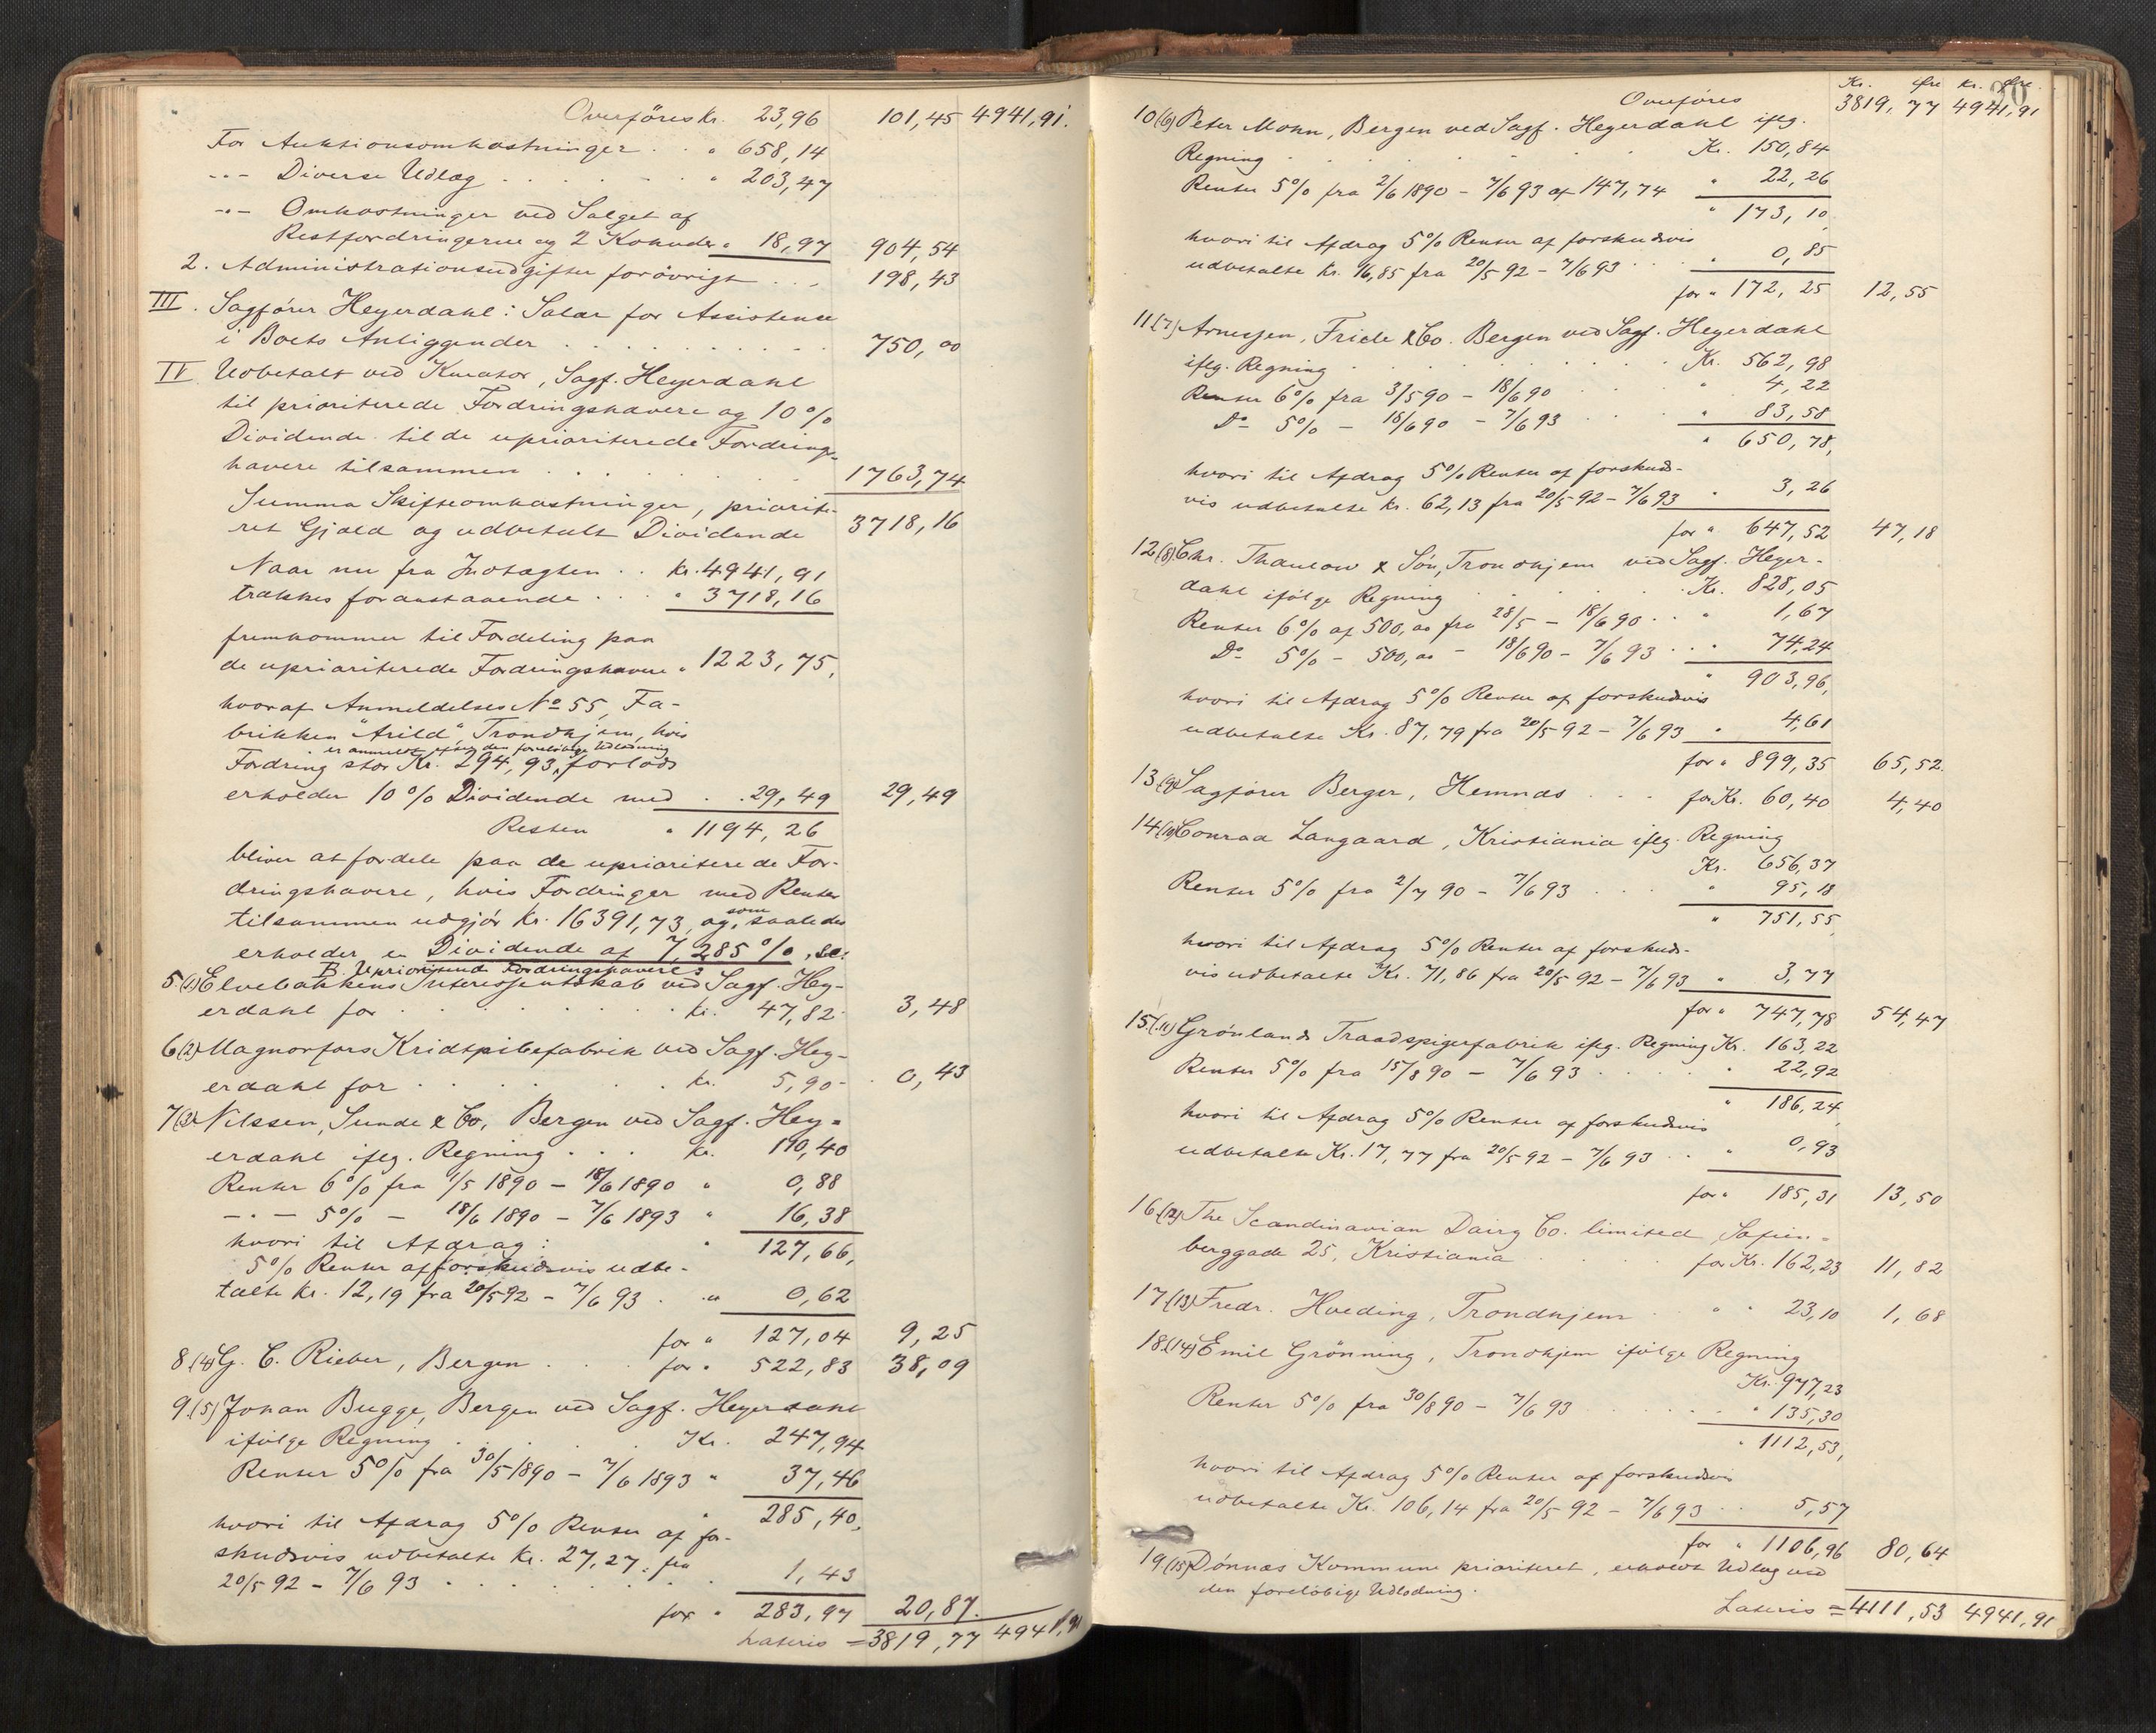 Overføres kr. 23,96 101,45 4941,91.
For Auktionsomkostninger . . " 658,14
-"- Diverse Udlæg . . . . . " 203,47
-"- Omkostninger ved Salget af
Restfordringerne og 2 Kohuder " 18,97 904,54
2. Administrationsudgifter forøvrigt . . . 198,43
III. Sagfører Heyerdahl: Salær for Assistense
i Boets Anliggender . . . . . . . . 750,00
IV. Udbetalt ved Kurator, Sagf. Heyerdahl
til prioriterede Fordringshavere og 10%
Dividende til de uprioriterede Fordrings-
havere tilsammen . . . . . . 1763,74
Summa Skifteomkostninger, priorite-
ret Gjæld og udbetalt Dividende 3718,16
Naar nu fra Indtægten . . kr. 4941,91
trækkes foranstaaende . . . " 3718,16
fremkommer til Fordeling paa
de uprioriterede Fordringshavere " 1223,75,
hvoraf Anmeldelses No 55, Fa-
brikken "Arild", Trondhjem, hvis
er anmeldt efter den foreløbige Udlodning
Fordring stor Kr. 294,93, forlods
erholder 10% Dividende med . . 29,49 29,49
Resten " 1194,26
bliver at fordele paa de uprioriterede For-
dringshavere, hvis Fordringer med Renter
tilsammen udgjør kr. 16391,73, og som saaledes
erholder en Dividende af 7,285%, sc:
B. Uprioriterede Fordringshavere:
5 (1) Elvebakkens Interessentskab ved Sagf. Hey-
erdahl for . . . . . . . kr. 47,82 3,48
6 (2) Magnorfors Kridtpibefabrik ved Sagf. Hey-
erdahl for . . . . . . . kr. 5,90 0,43
7 (3) Nilssen, Sunde & Co, Bergen ved Sagf. Hey-
erdahl iflg. Regning . . . kr. 110,40
Renter 6% fra 1/5 1890 - 18/6 1890 " 0,88
-"- 5% - 18/6 1890 - 7/6 1893 " 16,38
hvori til Afdrag: " 127,66,
5% Renter af forskudsvis udbe-
talte kr. 12,19 fra 20/5 92 - 7/6 93 . . " 0,62
for " 127,04 9,25
8 (4) G. C. Rieber, Bergen . . . for " 522,83 38,09
9 (5) Johan Bugge, Bergen ved Sagf. Heyerdahl
ifølge Regning . . . . . Kr. 247,94
Renter 5% fra 30/5 1890 - 7/6 1893 " 37,46
" 285,40,
hvori til Afdrag 5% Renter af for-
skudsvis udbetalte kr. 27,27 fra
20/5 92 - 7/6 93 . . . . . . . 1,43
for " 283,97 20,87.
Lateris = 3819,77 4941,91
Kr. Øre Kr. Øre.
Overføres 3819,77 4941,91
10 (6) Peter Mohn, Bergen ved Sagf. Heyerdahl iflg.
Regning . . . . . . . Kr. 150,84
Renter 5% fra 2/6 1890 - 7/6 93 af 147,74 " 22,26
" 173,10,
hvori til Afdrag 5% Renter af forskudsvis
udbetalte kr. 16,85 fra 20/5 92 - 7/6 93 . . . " 0,85
for " 172,25 12,55
11 (7) Arnessen, Friele & Co. Bergen ved Sagf. Heyerdahl
iflg. Regning . . . . . . . Kr. 562,98
Renter 6% fra 3/5 90 - 18/6 90 . . " 4,22
Do 5% - 18/6 90 - 7/6 93 . . . " 83,58
" 650,78,
hvori til Afdrag 5% Renter af forskuds-
vis udbetalte kr. 62,13 fra 20/5 92 - 7/6 93 " 3,26
for " 647,52 47,18
12 (8) Chr. Thaulow & Søn, Trondhjem ved Sagf. Heyer-
dahl ifølge Regning . . . . . . Kr. 828,05
Renter 6% af 500,00 fra 28/5 - 18/6 90 . . " 1,67
Do 5% - 500,00 - 18/6 90 - 7/6 93 . . . " 74,24
" 903,96,
hvori til Afdrag 5% Renter af forskudsvis
udbetalte Kr. 87,79 fra 20/5 92 - 7/6 93 " 4,61
for " 899,35 65,52.
13 (9) Sagfører Berger, Hemnæs . . . for Kr. 60,40 4,40
14 (10) Conrad Langaard, Kristiania iflg. Regning
Kr. 656,37
Renter 5% fra 2/7 90 - 7/6 93 . . . " 95,18
" 751,55,
hvori til Afdrag 5% Renter af forskuds-
vis udbetalte Kr. 71,86 fra 20/5 92 - 7/6 93 " 3,77
for " 747,78 54,47
15 (11) Grønlands Traadspigerfabrik iflg. Regning Kr. 163,22
Renter 5% fra 15/8 90 - 7/6 93 . . . . . " 22,92
" 186,24,
hvori til Afdrag 5% Renter af forskudsvis
udbetalte Kr. 17,77 fra 20/5 92 - 7/6 93 . . " 0,93
for " 185,31 13,50
16 (12) The Scandinavian Dairy Co. limited, Sofien-
berggade 25, Kristiania . . . . for Kr. 162,23 11,82
17 (13) Fredr. Hveding, Trondhjem . . " " 23,10 1,68
18 (14) Emil Grönning, Trondhjem ifølge Regning
Kr. 977,23
Renter 5% fra 30/8 90 - 7/6 93 . . . . . . " 135,30
" 1112,53,
hvori til Afdrag 5% Renter af forskudsvis
udbetalte Kr. 106,14 fra 20/5 92 - 7/6 93 . . 5,57
for " 1106,96 80,64
19 (15) Dønnæs Kommune prioriteret, erholdt Udlæg ved
den foreløbige Udlodning.
Lateris = 4111,53 4941,91